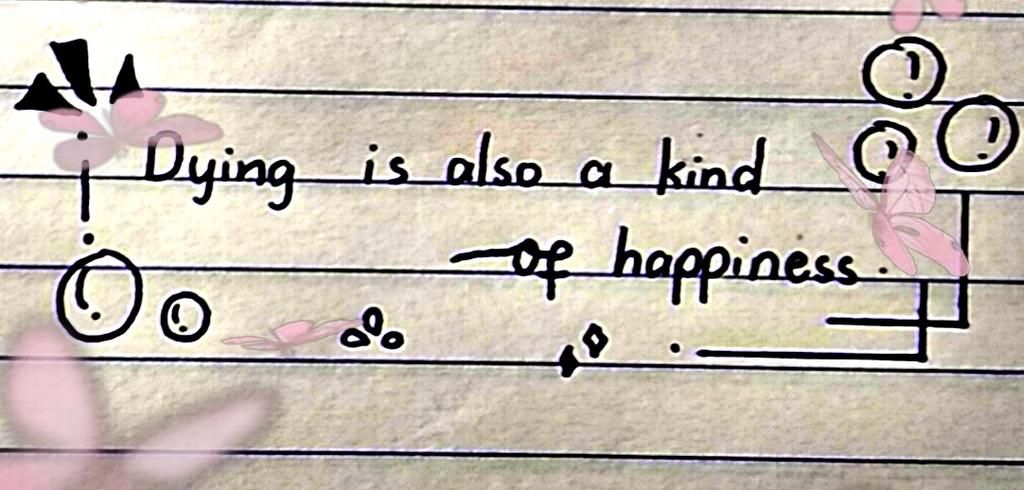 Dying is also a kind
of happiness.